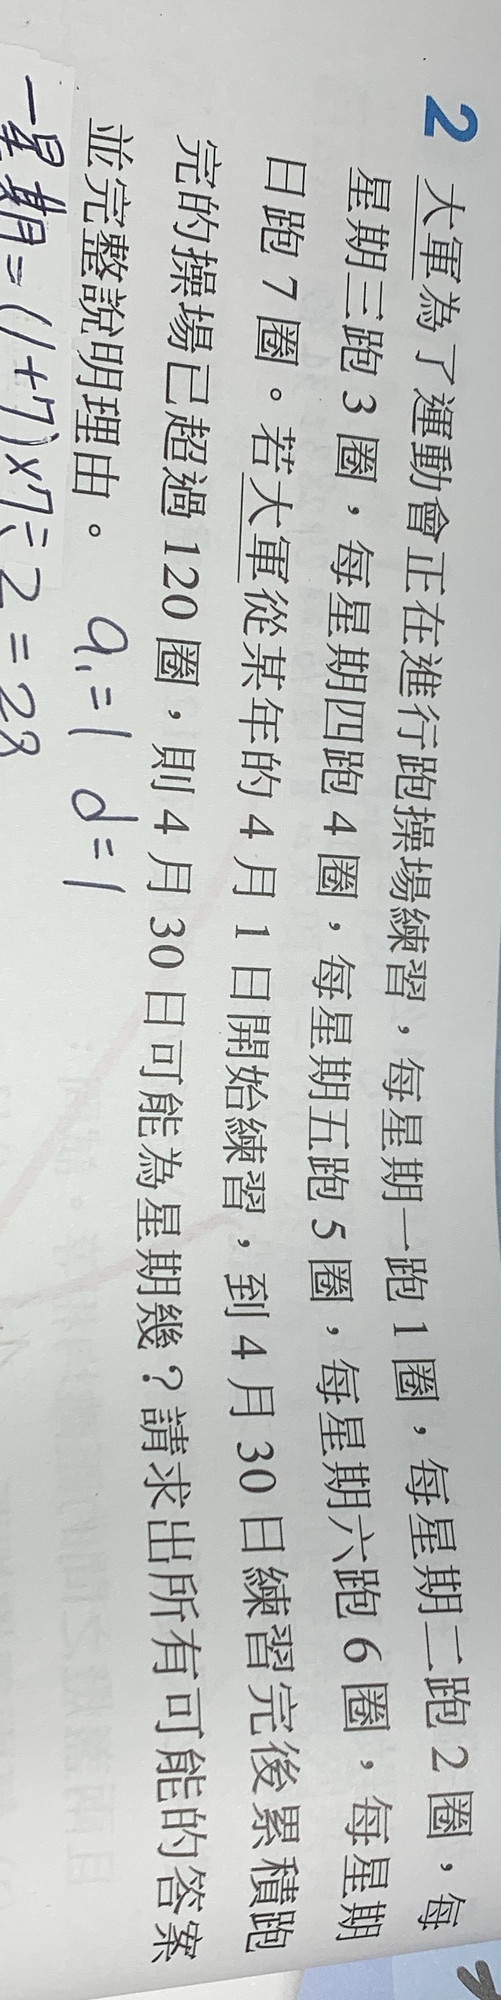 2 大軍為了運動會正在進行跑操場練習，每星期一跑1圈，每星期二跑2圈，每
星期三跑3圈，每星期四跑4圈，每星期五跑5圈，每星期六跑6圈，每星期
日跑7圈。若大軍從某年的4月1日開始練習，到4月30日練習完後累積跑
完的操場已超過120圈，則4月30日可能為星期幾？請求出所有可能的答案
並完整說明理由。 a₁=1 d=1
一星期=(1+7)×7÷2=28